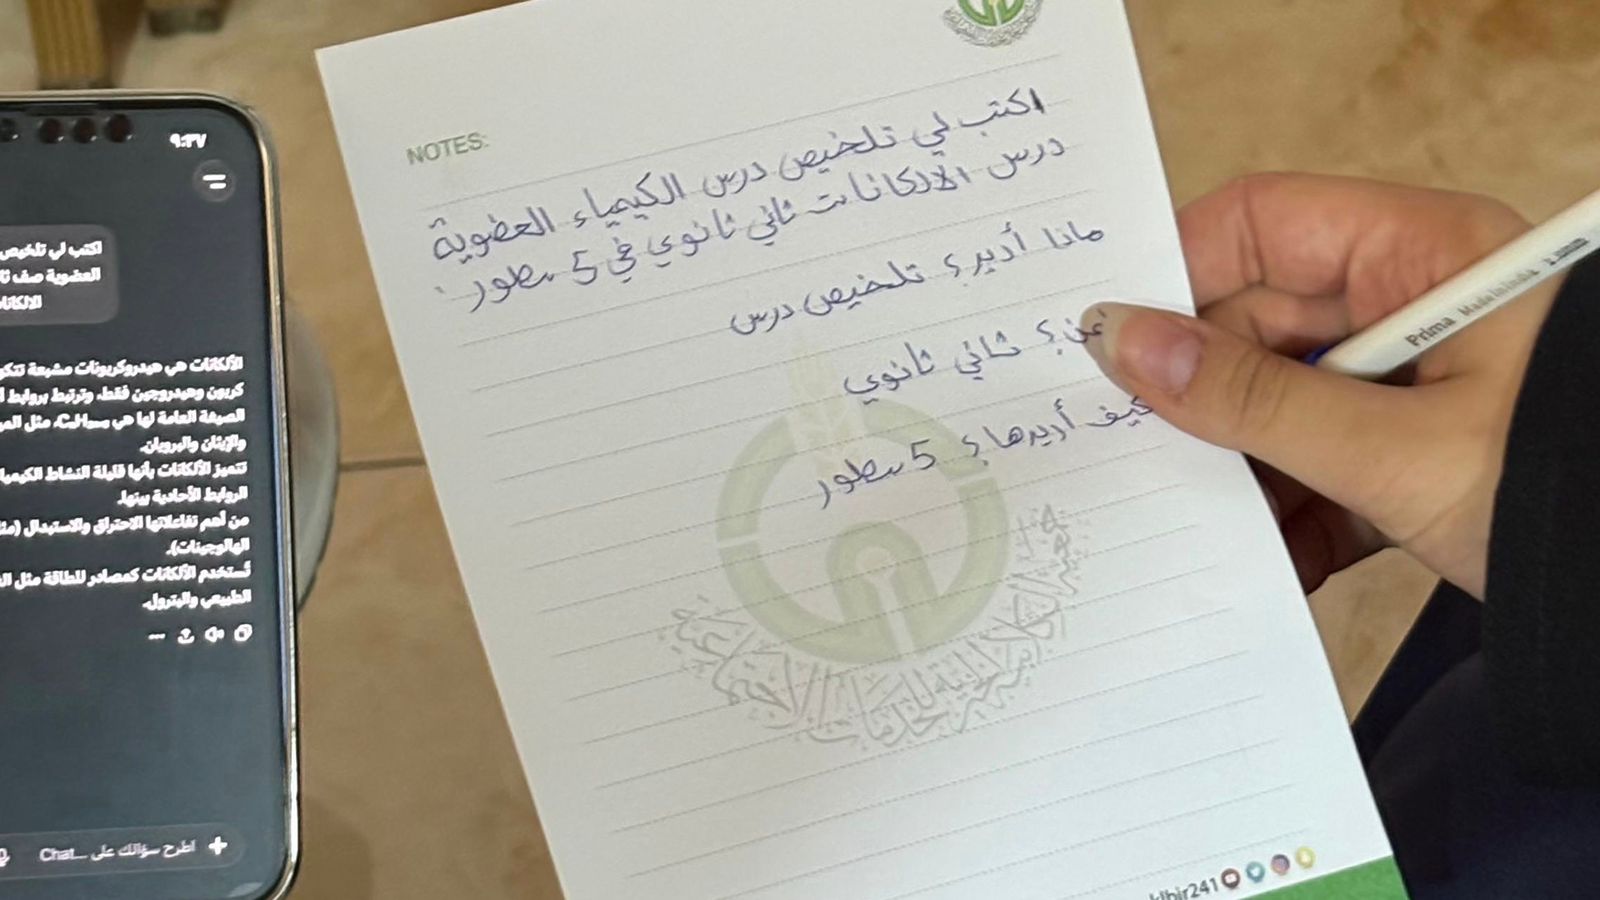 ٩:٣٧
اكتب لي تلخيص
العضوية صف
الالكانات
الألكانات هي هيدروكربونات مشبعة
كربون وهيدروجين فقط، وترتبط بروابط
الصيغة العامة لها هي مثل
والإيثان والبروبان.
تتميز الألكانات بأنها قليلة النشاط
الروابط الأحادية بينها.
من أهم تفاعلاتها الاحتراق والاستبدال
الهالوجينات).
تُستخدم الألكانات كمصادر للطاقة مثل
الطبيعي والبترول.
اطرح سؤالك على ...Chat
NOTES:
اكتب لي تلخيص درس الكيمياء العضوية
درس الالكانات ثاني ثانوي في 5 سطور.
ماذا أديره؟ تلخيص درس
ثاني ثانوي
كيف أديرها؟ 5 سطور
Prima Made In India